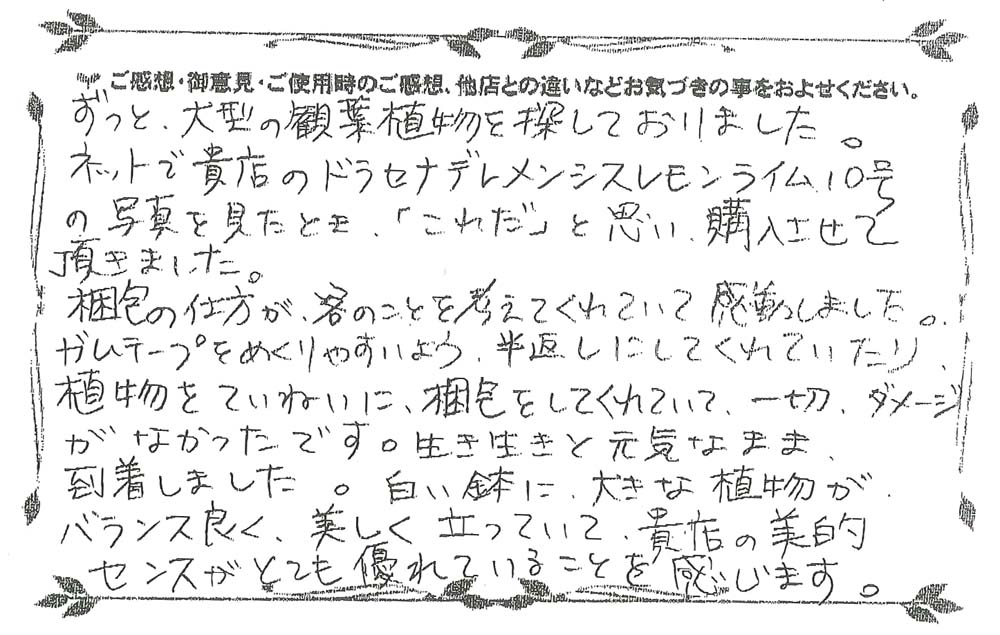 ご感想・御意見・ご使用時のご感想、他店との違いなどお気づきの事をおよせください。
ずっと、大型の観葉植物を探しておりました。
ネットで貴店のドラセナデレメンシスレモンライム10号
の写真を見たとき、「これだ」と思い、購入させて
頂きました。
梱包の仕方が、客のことを考えてくれていて感動しました。
ガムテープをめくりやすいよう、半返しにしてくれていたり、
植物をていねいに、梱包をしてくれていて、一切、ダメージ
がなかったです。生き生きと元気なまま、
到着しました。白い鉢に、大きな植物が、
バランス良く、美しく立っていて、貴店の美的
センスがとても優れていることを感じます。